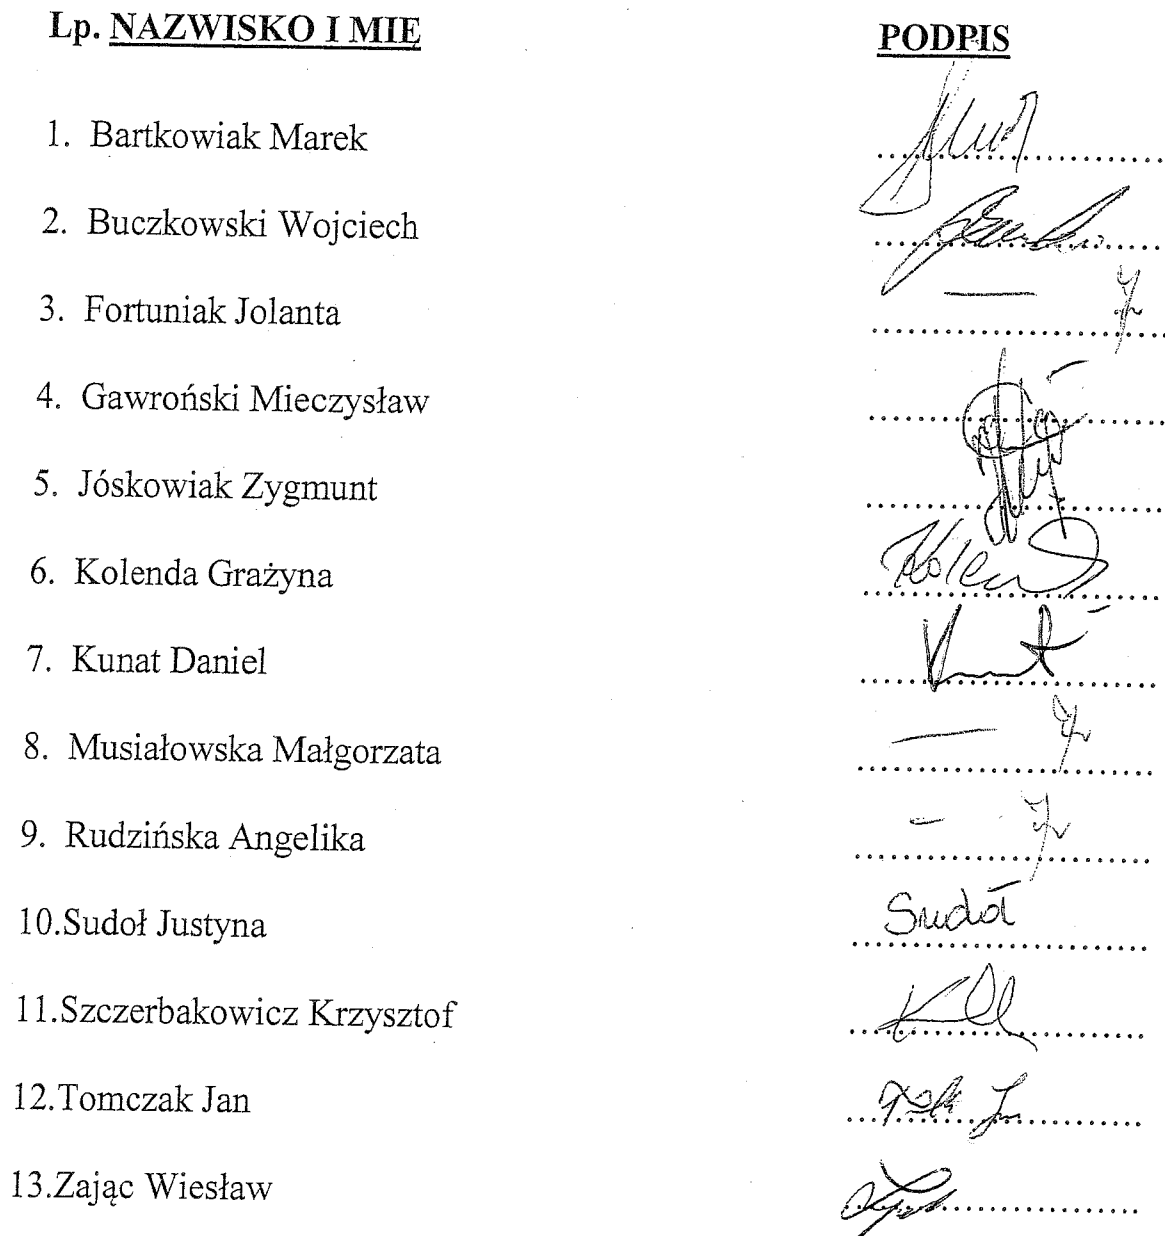 Lp. NAZWISKO I MIĘ PODPIS
1. Bartkowiak Marek
2. Buczkowski Wojciech
3. Fortuniak Jolanta
4. Gawroński Mieczysław
5. Jóskowiak Zygmunt
6. Kolenda Grażyna
7. Kunat Daniel
8. Musiałowska Małgorzata
9. Rudzińska Angelika
10.Sudoł Justyna Sudoł
11.Szczerbakowicz Krzysztof
12.Tomczak Jan
13.Zając Wiesław